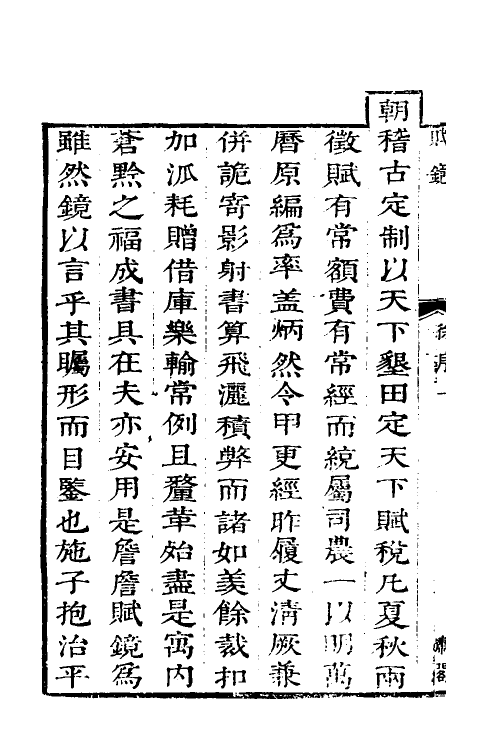 朝稽古定制以天下墾田定天下賦稅凡夏秋兩
徵賦有常額費有常經而統屬司農一以明萬
曆原編為率盖炳然令甲更經昨履丈清厥兼
併詭寄影射書算飛灑積弊而諸如羡餘裁扣
加派耗贈借庫樂輸常例且釐革殆盡是寓内
蒼黔之福成書具在夫亦安用是詹詹賦鏡為
雖然鏡以言乎其矚形而目鑒也施子抱治平
賦鏡